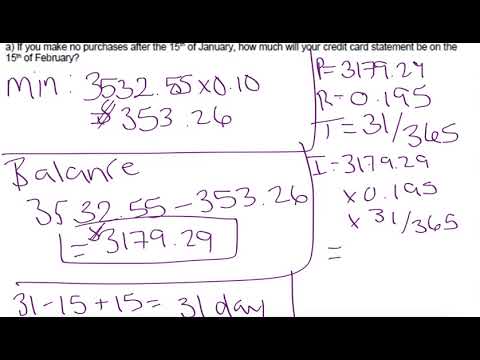 a) If you make no purchases after the 15th of January, how much will your credit card statement be on the
15th of February?
min: 3532.55 x 0.10
= $353.26
Balance
3532.55 - 353.26
= $3179.29
31-15+15= 31 day
P= 3179.29
R= 0.195
T= 31/365
I= 3179.29
x 0.195
x 31/365
=